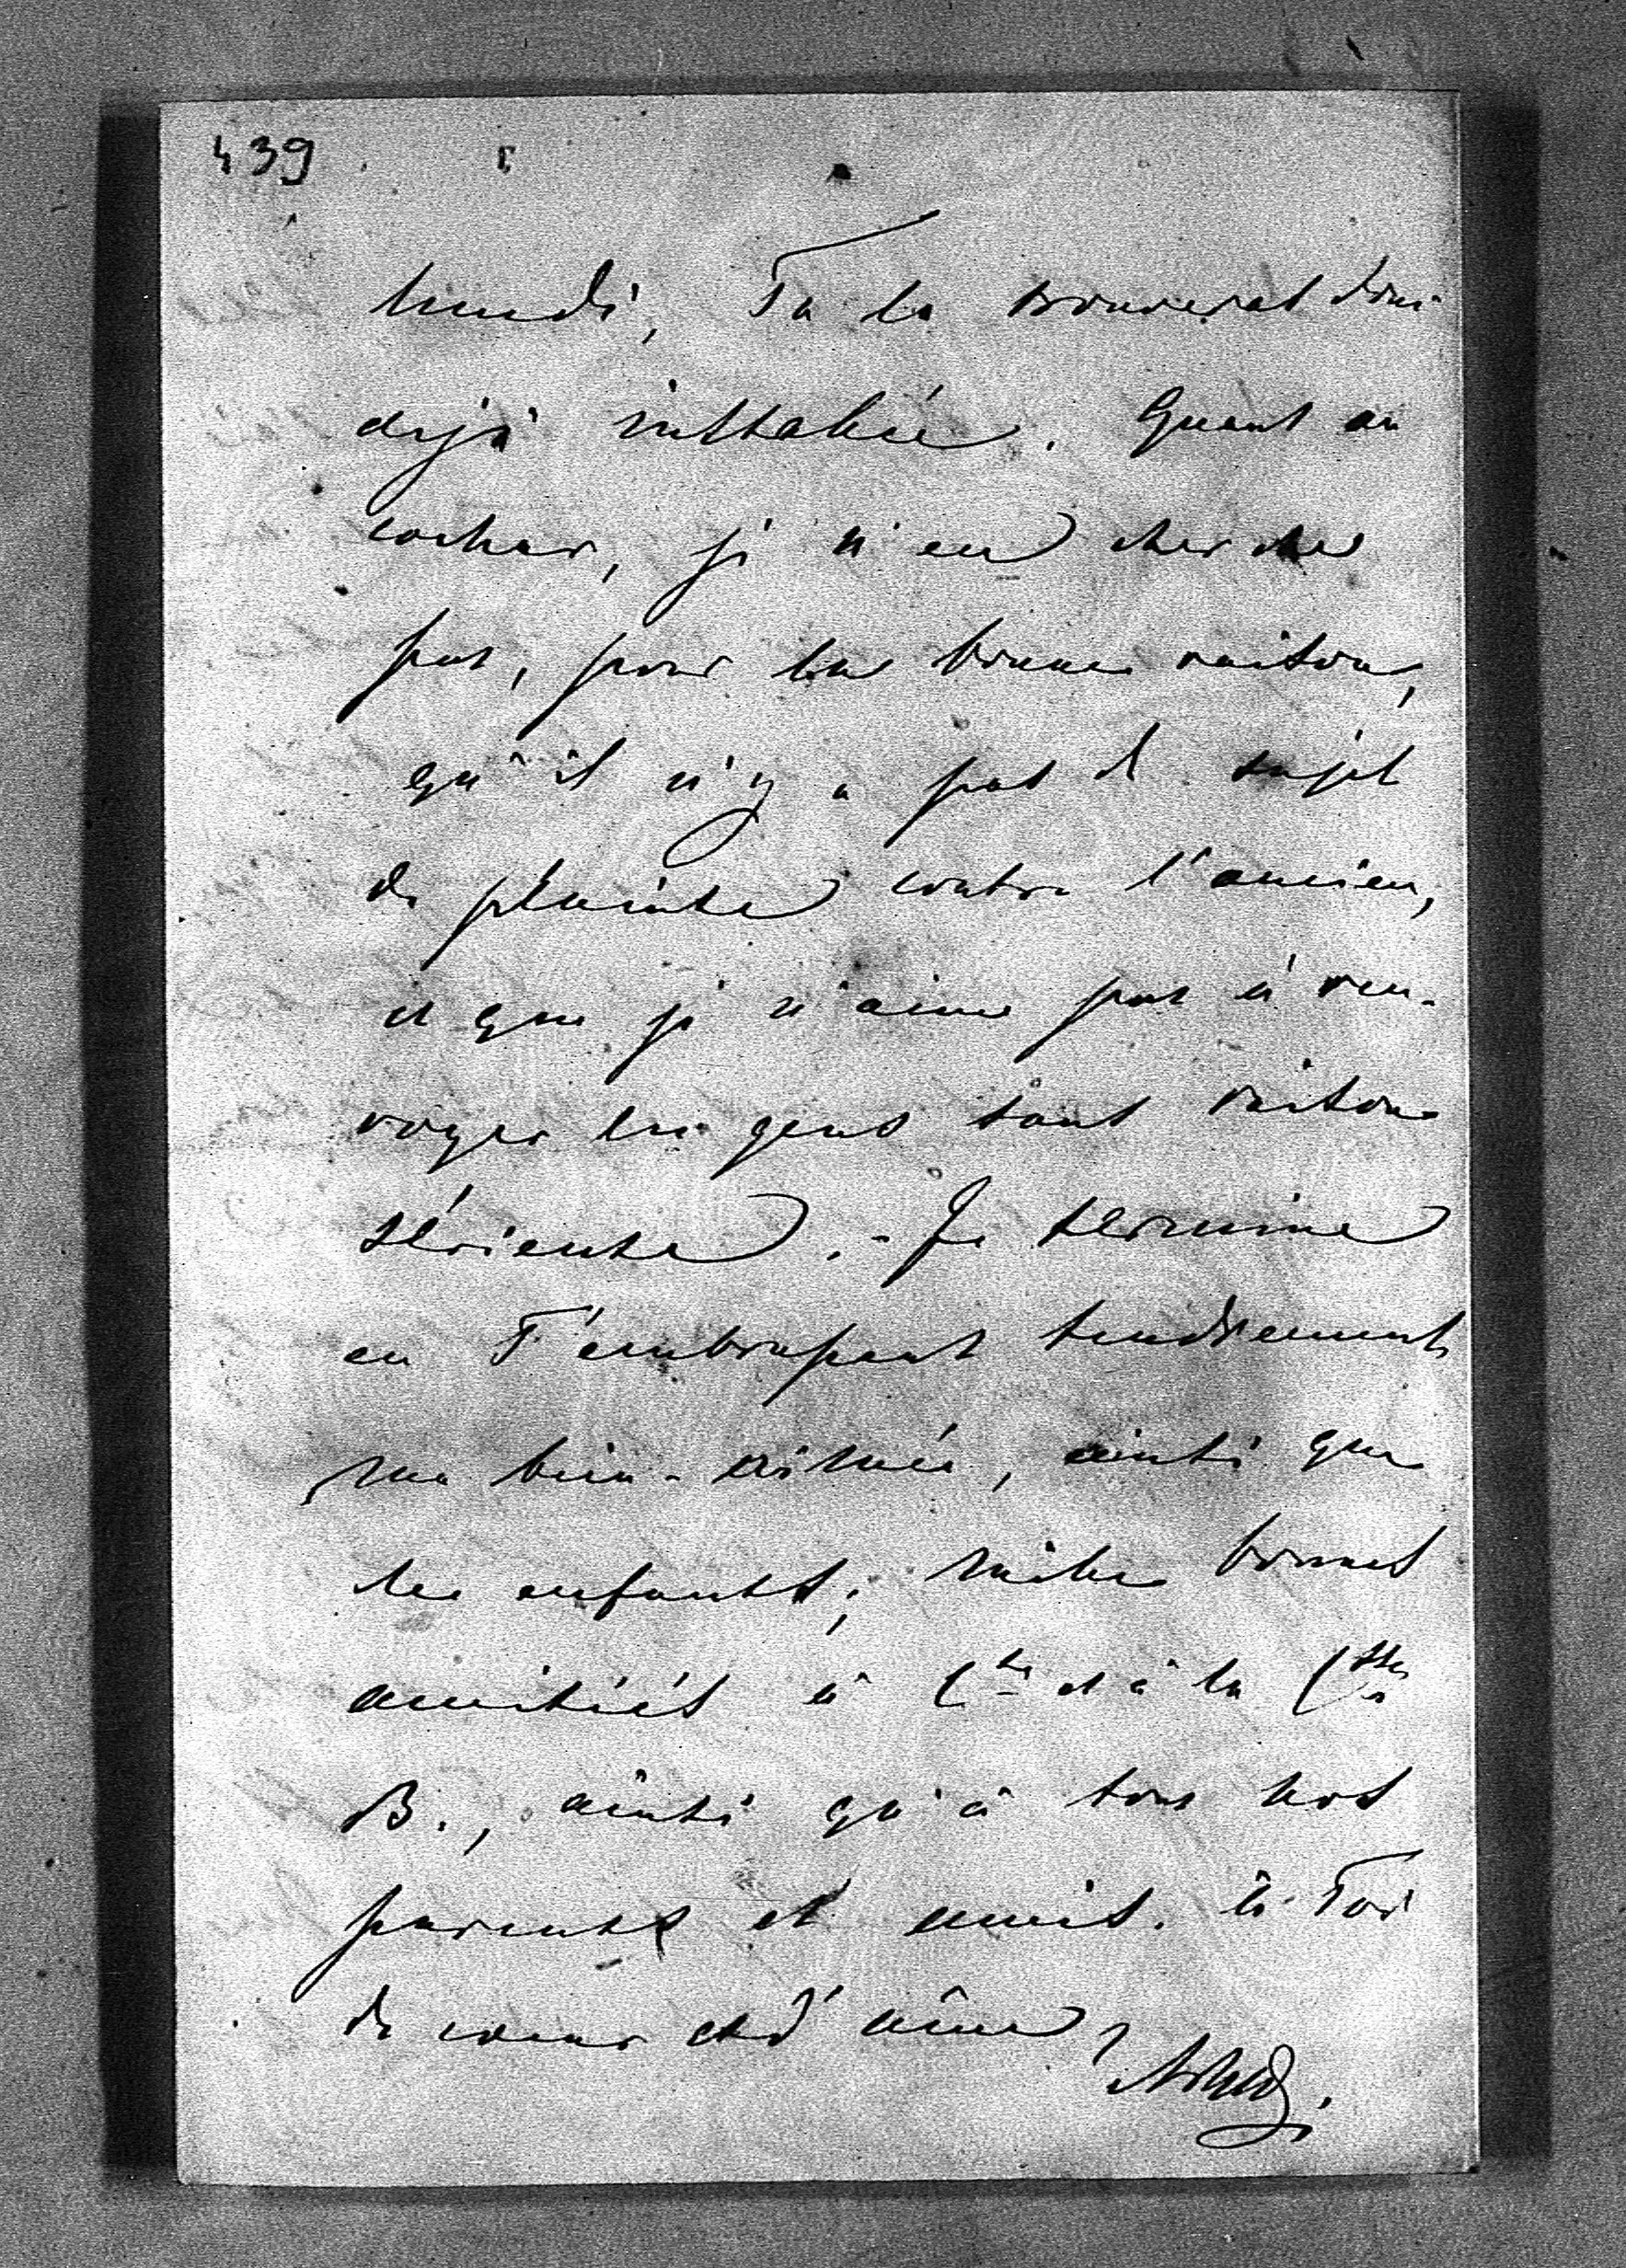 439
lundi, Tu la trouveras donc
déjà installée. Quant au
cocher, je n'en cherche
pas, pour la bonne raison,
qu'il n'y a pas de sujet
de plainte contre l'ancien,
et que je n'aime pas à ren-
voyer les gens sans raison
sérieuse. - Je termine
en T'embrassant tendrement
ma bien-aimée, ainsi que
les enfants; mille bonnes
amitiés à C^te et à la C^tesse
B., ainsi qu'à tous nos
parents et amis. à Toi
de coeur et d'âme,